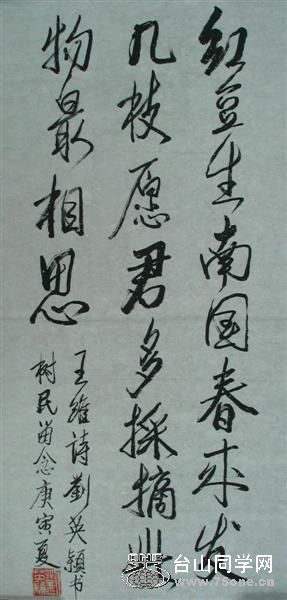 红豆生南国春来发
几枝愿君多採摘此
物最相思
王维诗劉英穎书
树民留念庚寅夏
台山同学网
www.75one.cn